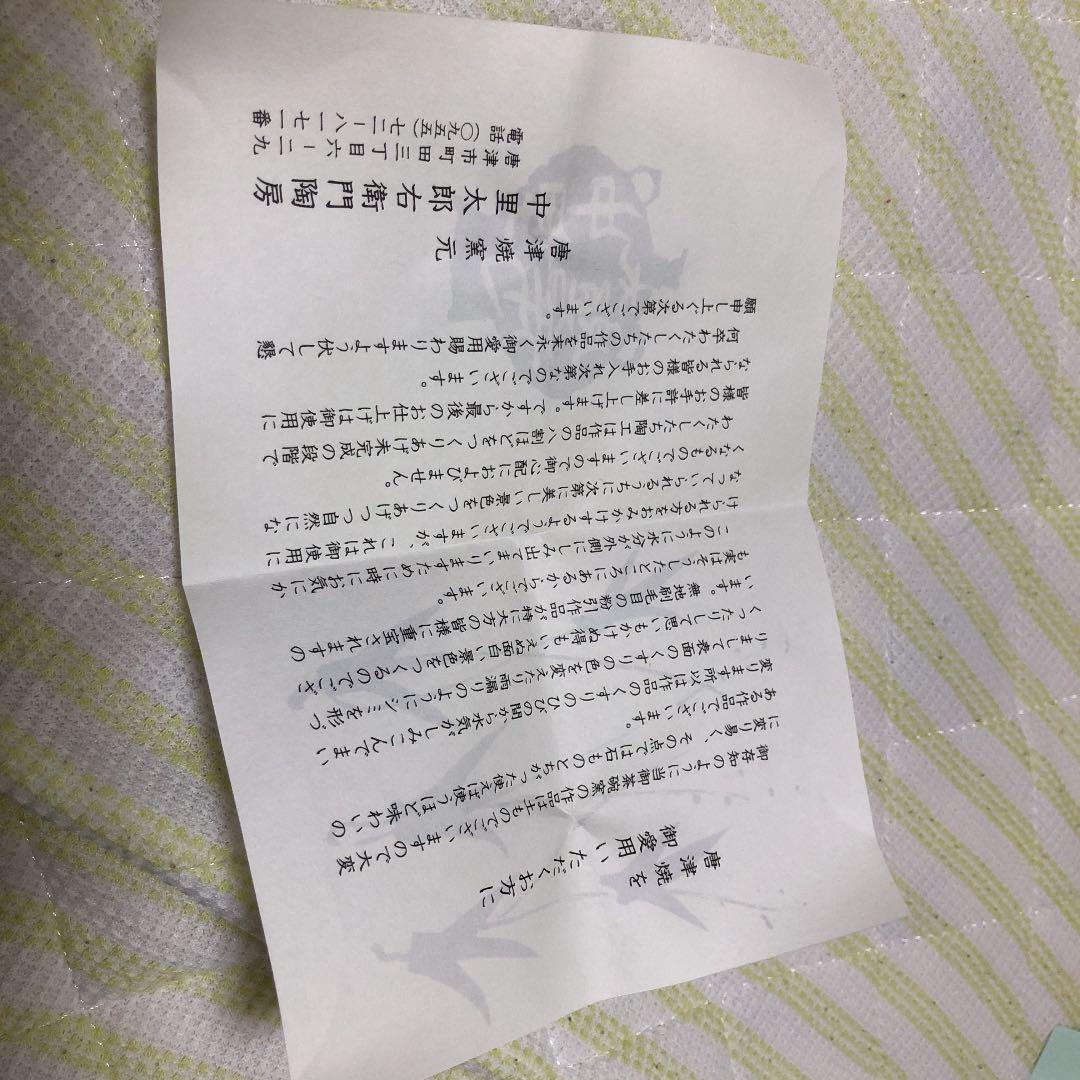 唐津焼を
御愛用いただくお方に
御存知のように当御茶碗窯の作品は土ものでございますので大変
に変り易く、その点では石ものとちがった使えば使うほど味わいの
ある作品でございます。
変ります所以は作品のくすりのひびの間から水気がしみこんでまい
りまして表面のくすりの色を変えたり雨漏りのようにシミを形づ
くったりして思いもかけぬ得もいえぬ面白い景色をつくるのでござ
います。無地刷毛目の粉引作品が特に大方の皆様に重宝されますの
も実はそうしたところにあるからでございます。
このように水分が外側にしみ出てまいりますために時にお気にか
けられる方をおみかけするようでございますが、これは御使用に
なっていられるうちに次第に美しい景色をつくりあげつつ自然にな
くなるものでございますので御心配におよびません。
わたくしたち陶工は作品の八割ほどをつくりあげ未完成の段階で
皆様のお手許に差し上げます。ですから最後のお仕上げは御使用に
なられる皆様のお手入れ次第なのでございます。
何卒わたくしたちの作品を末永く御愛用賜わりますよう伏して懇
願申し上ぐる次第でございます。
唐津焼窯元
中里太郎右衛門陶房
唐津市町田三丁目六ー二九
電話(〇九五五)七二ー八一七一番